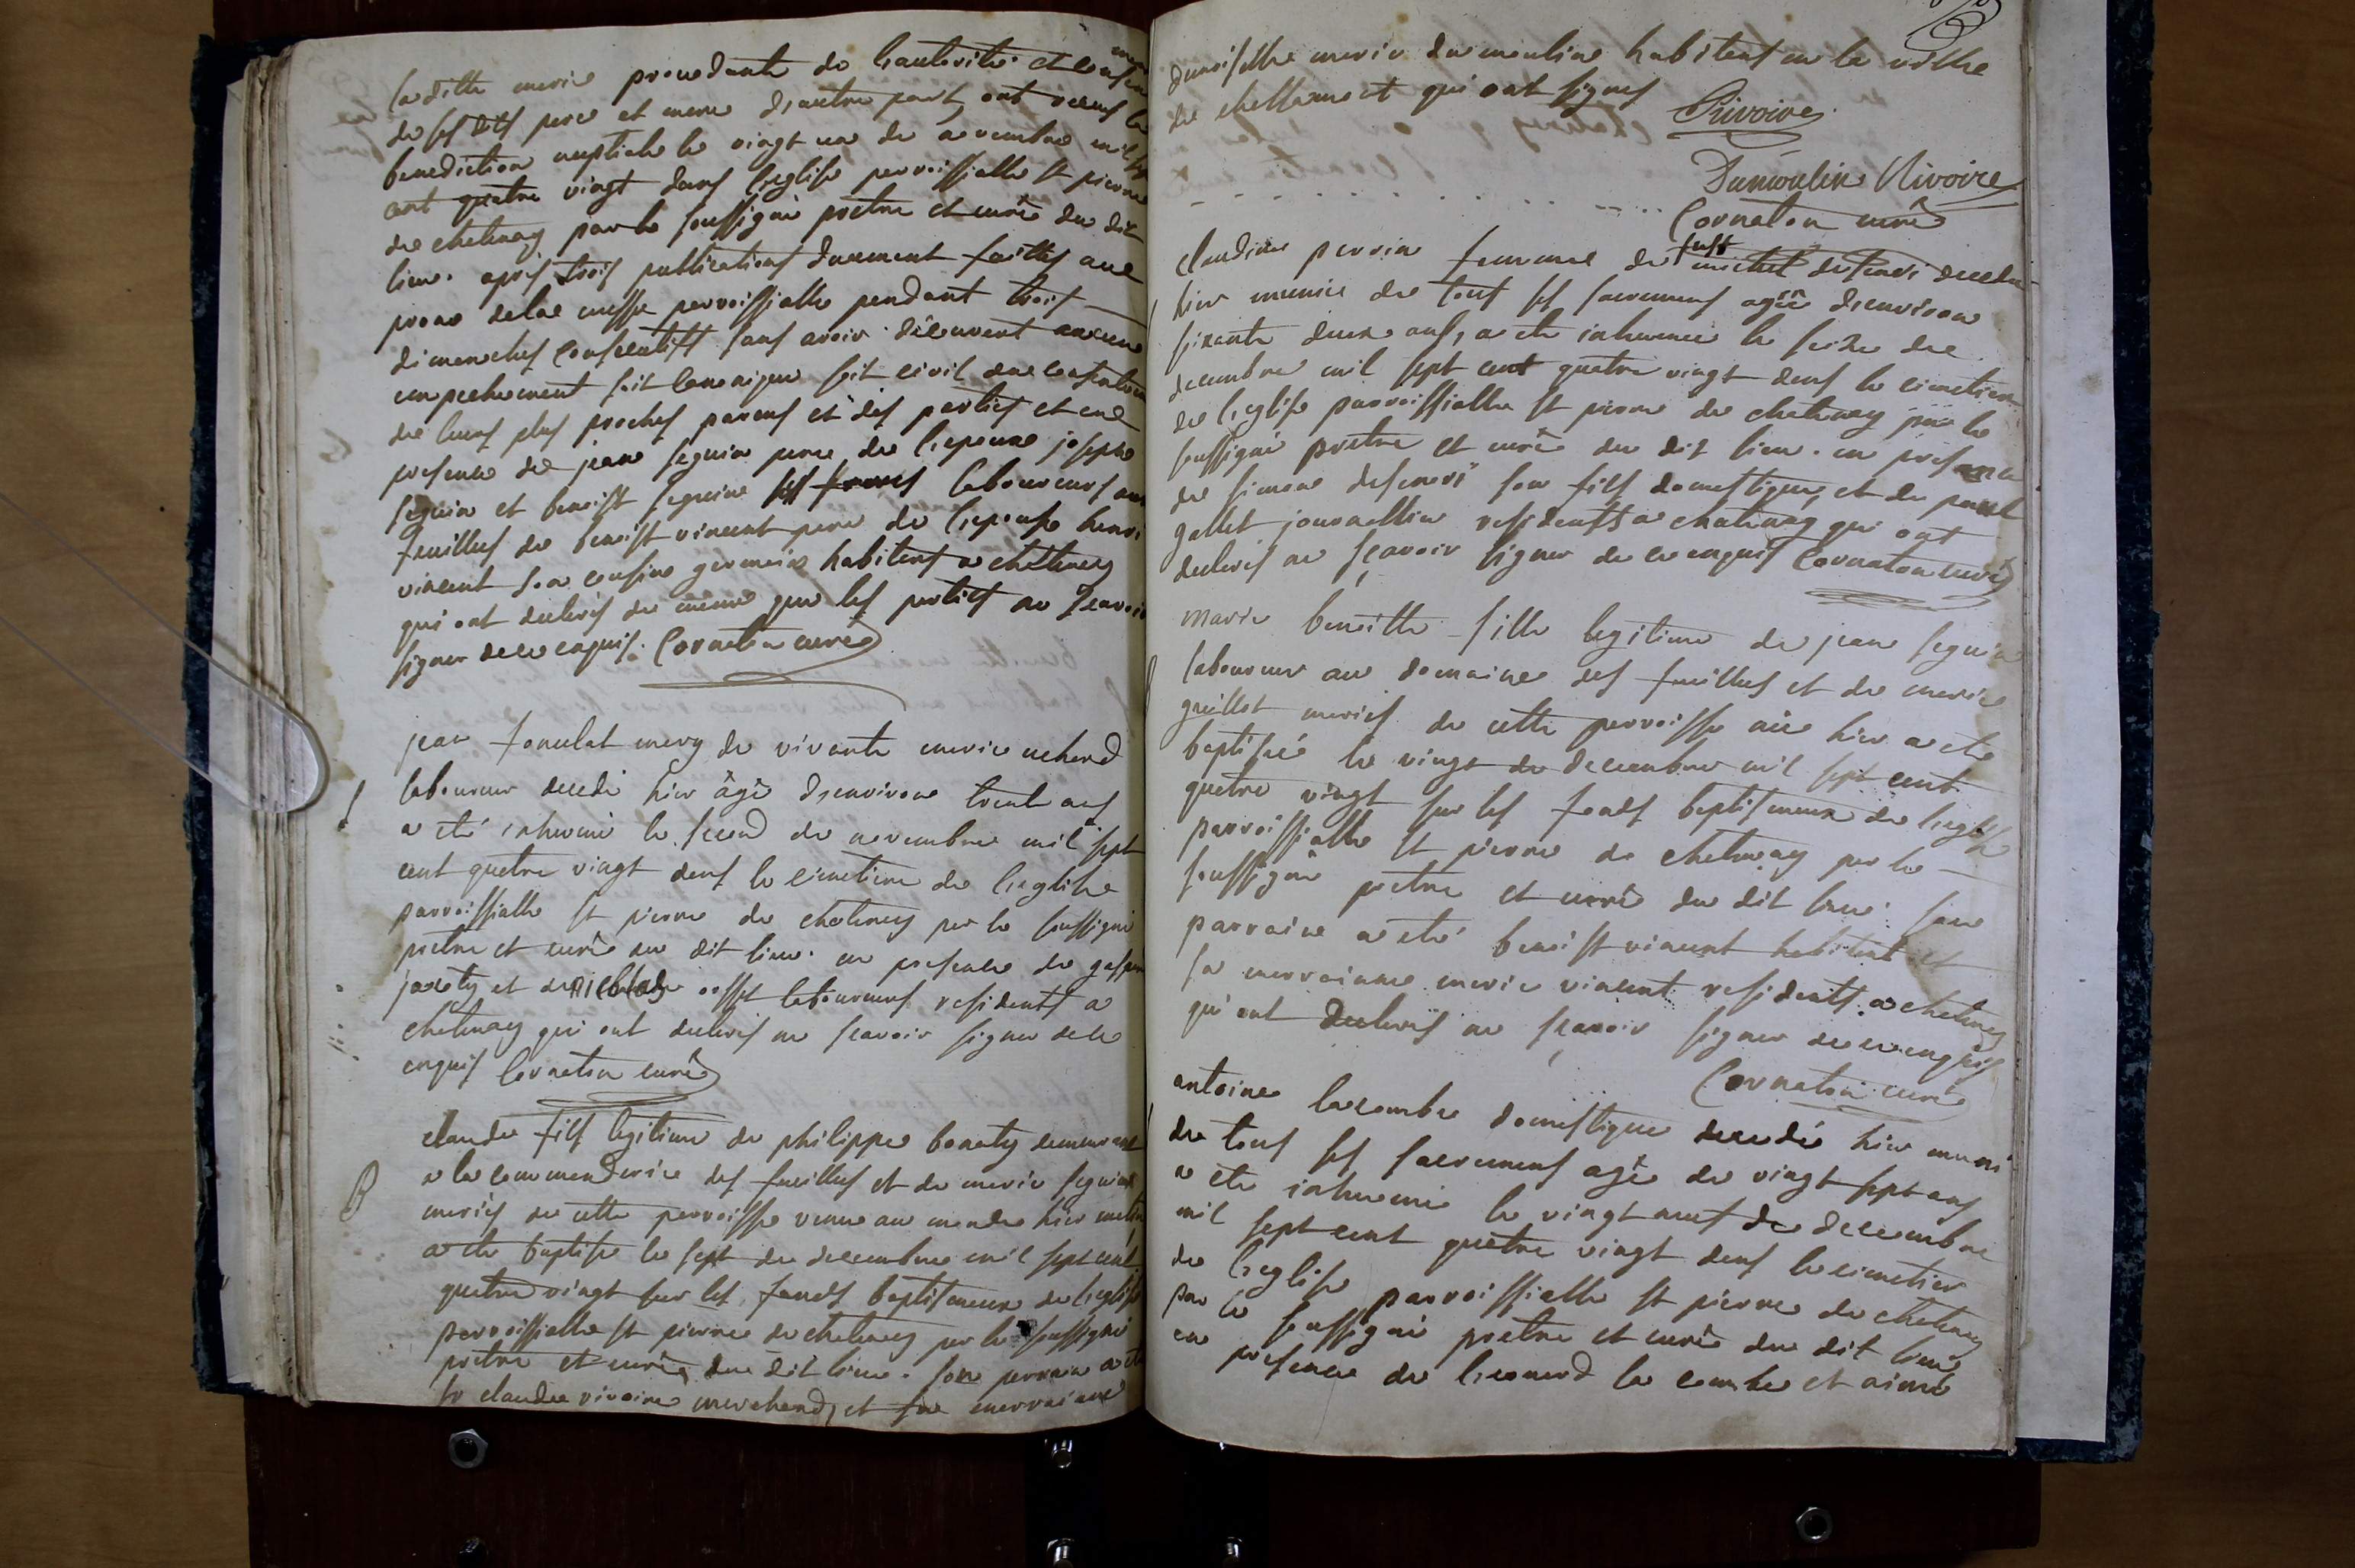 laditte marie procedante de l'autorité et consen
de ses dits pere et mere d'autre part, ont reçus la
benediction nuptiale le vingt un de novembre mil sept
cent quatre vingt dans l'eglise parroissialle st pierre
de chatenay par le soussigné pretre et curé du dit
lieu. après trois publications duement faittes aux
prone de la messe parroissialle pendant trois
dimanches consecutifs sans avoir decouvert aucun
empechement soit canonique soit civil du consentem
de leurs plus proches parens et des parties et en
presence de jean seguin pere de l'epoux joseph
seguin et benoist seguin laboureurs aux
feuilles de benoist vincent pere de l'epouse
vincent son cousin germain habitens a chatenay
qui ont declarés de même que les parties ne sçavoir
signer de ce enquis. Cornaton curé
jean mary de vivante marie
laboureur decedé hier âgé d'environ trente ans
a eté inhumé le second de novembre mil sept
cent quatre vingt dans le cimetiere de l'eglise
parroissialle st pierre de chatenay par le soussigné
pretre et curé du dit lieu. en presence de
et de laboureurs residents a
chatenay qui ont declarés ne sçavoir signer de ce
enquis Cornaton curé
B
claude fils legitime de philippe demeurant
a la commanderie des feuilles et de marie seguin
mariés de cette parroisse venu au monde hier matin
a eté baptisé le sept de decembre mil sept cent
quatre vingt sur les fonds baptismaux de l'eglise
parroissialle st pierre de chatenay par le soussigné
pretre et curé du dit lieu. son parrain a eté
sr claude rivoire marchand, et sa marraine
demoiselle marie dumoulin habitens en la ville
de chellamont qui ont signés Rivoire
Dumoulin Rivoire
Cornaton curé
claudine perrin femme de feust michel decedée
hier munie de tous ses sacremens agée d'environ
soixante deux ans, a eté inhumée le seize de
decembre mil sept cent quatre vingt dans le cimetiere
de l'eglise parroissialle st pierre de chatenay par le
soussigné pretre et curé du dit lieu. en presence
de simon son fils domestique, et de
journallier residents a chatenay qui ont
declarés ne sçavoir signer de ce enquis Cornaton curé
marie benoitte fille legitime de jean seguin
laboureur au domaine des feuilles et de marie
guillot mariés de cette parroisse née hier a eté
baptisée le vingt de decembre mil sept cent
quatre vingt sur les fonds baptismaux de l'eglise
parroissialle st pierre de chatenay par le
soussigné pretre et curé du dit lieu. son
parrain a eté benoist vincent habitent et
sa marrainne marie vincent residents a chatenay
qui ont declarés ne sçavoir signer de ce enquis
Cornaton curé
antoine lacombe domestique decedé hier muni
de tous ses sacremens agé de vingt sept ans
a eté inhumé le vingt neuf de decembre
mil sept cent quatre vingt dans le cimetier
de l'eglise parroissialle st pierre de chatenay
par le soussigné pretre et curé du dit lieu
en presence de leonard la combe et aimé